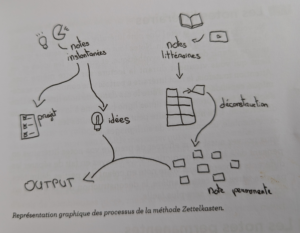 notes
instantanées
notes
littéraires
projet
idées
déconstruction
OUTPUT
Note permanente
Représentation graphique des processus de la méthode Zettelkasten.